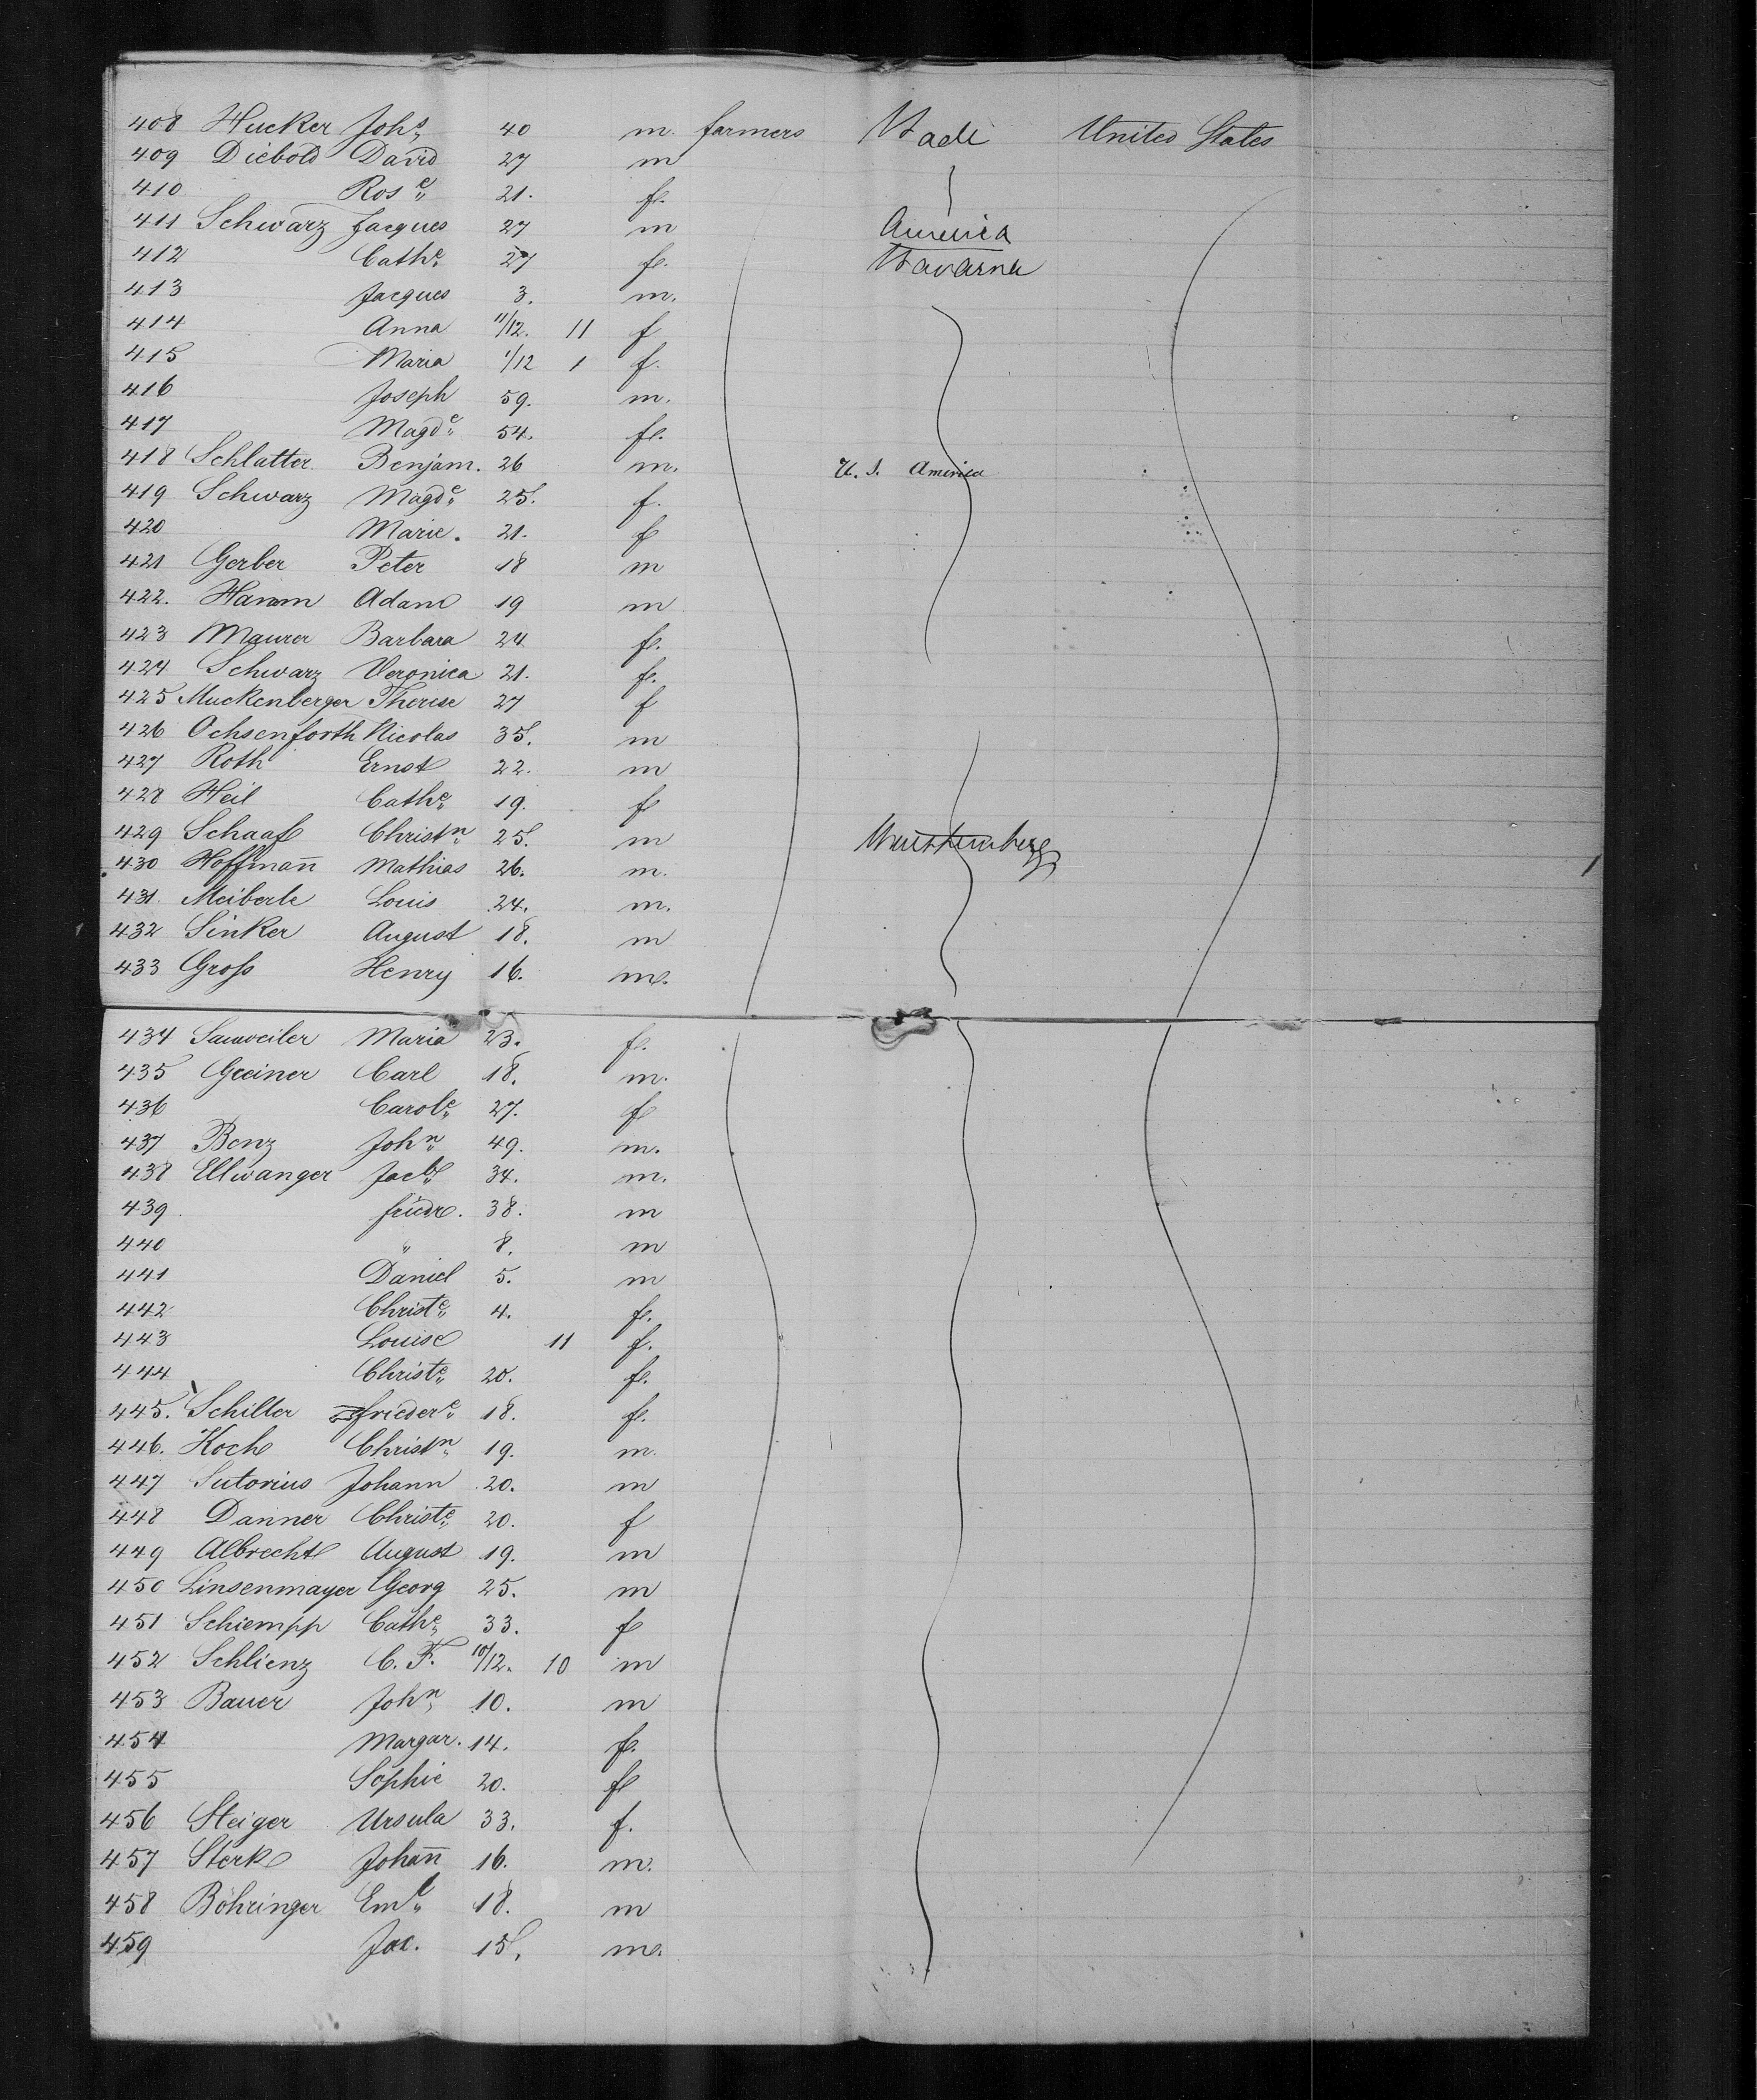 408 Hucker Joh.s 40 m. farmers Bade United States
409 Diebold David 27 m
410 Ros.e 21. f.
411 Schwarz Jacques 27 m America
412 Cath.e 27 f. Bavaria
413 Jacques 3. m.
414 Anna 11/12. 11 f
415 Maria 1/12 1 f.
416 Joseph 59. m.
417 Magd.e 54. f.
418 Schlatter Benjam. 26 m. U. S. America
419 Schwarz Magd.e 25. f.
420 Marie. 21. f
421 Gerber Peter 18 m
422. Hamm Adam 19 m
423 Maurer Barbara 24 f.
424 Schwarz Veronica 21. f.
425 Muckenberger Therese 27 f
426 Ochsenforth Nicolas 35. m
427 Roth Ernst 22. m
428 Heil Cath.e 19. f
429 Schaaf Christ.n 25. m Wurttemberg
430 Hoffman̅n Mathias 26. m.
431. Meiberle Louis 24. m.
432 Sinker August 18. m
433 Groſs Henry 16. m.
434 Sauweiler Maria 23. f.
435 Greiner Carl 18. m.
436 Carol.e 27. f
437 Benz Joh.n 49. m.
438 Ellwanger Jacb. 34. m.
439 friedr. 38. m
440 " 8. m
441 Daniel 5. m
442 Christ.e 4. f.
443 Louise 11 f.
444 Christ.e 20. f.
445. Schiller frieder.e 18. f.
446. Koch Christ.n 19. m.
447 Sutorius Johann 20. m
448 Danner Christ.e 20. f
449 Albrecht August 19. m
450 Linsenmayer Georg 25. m
451 Schiempp Cath.e 33. f
452 Schlienz C. F. 10/12. 10 m
453 Bauer Joh.n 10. m
454 Margar. 14. f.
455 Sophie 20. f
456 Steiger Ursula 33. f.
457 Sterk Johan̅n 16. m.
458 Böhringer Em.l 18. m
459 Jac. 15. m.